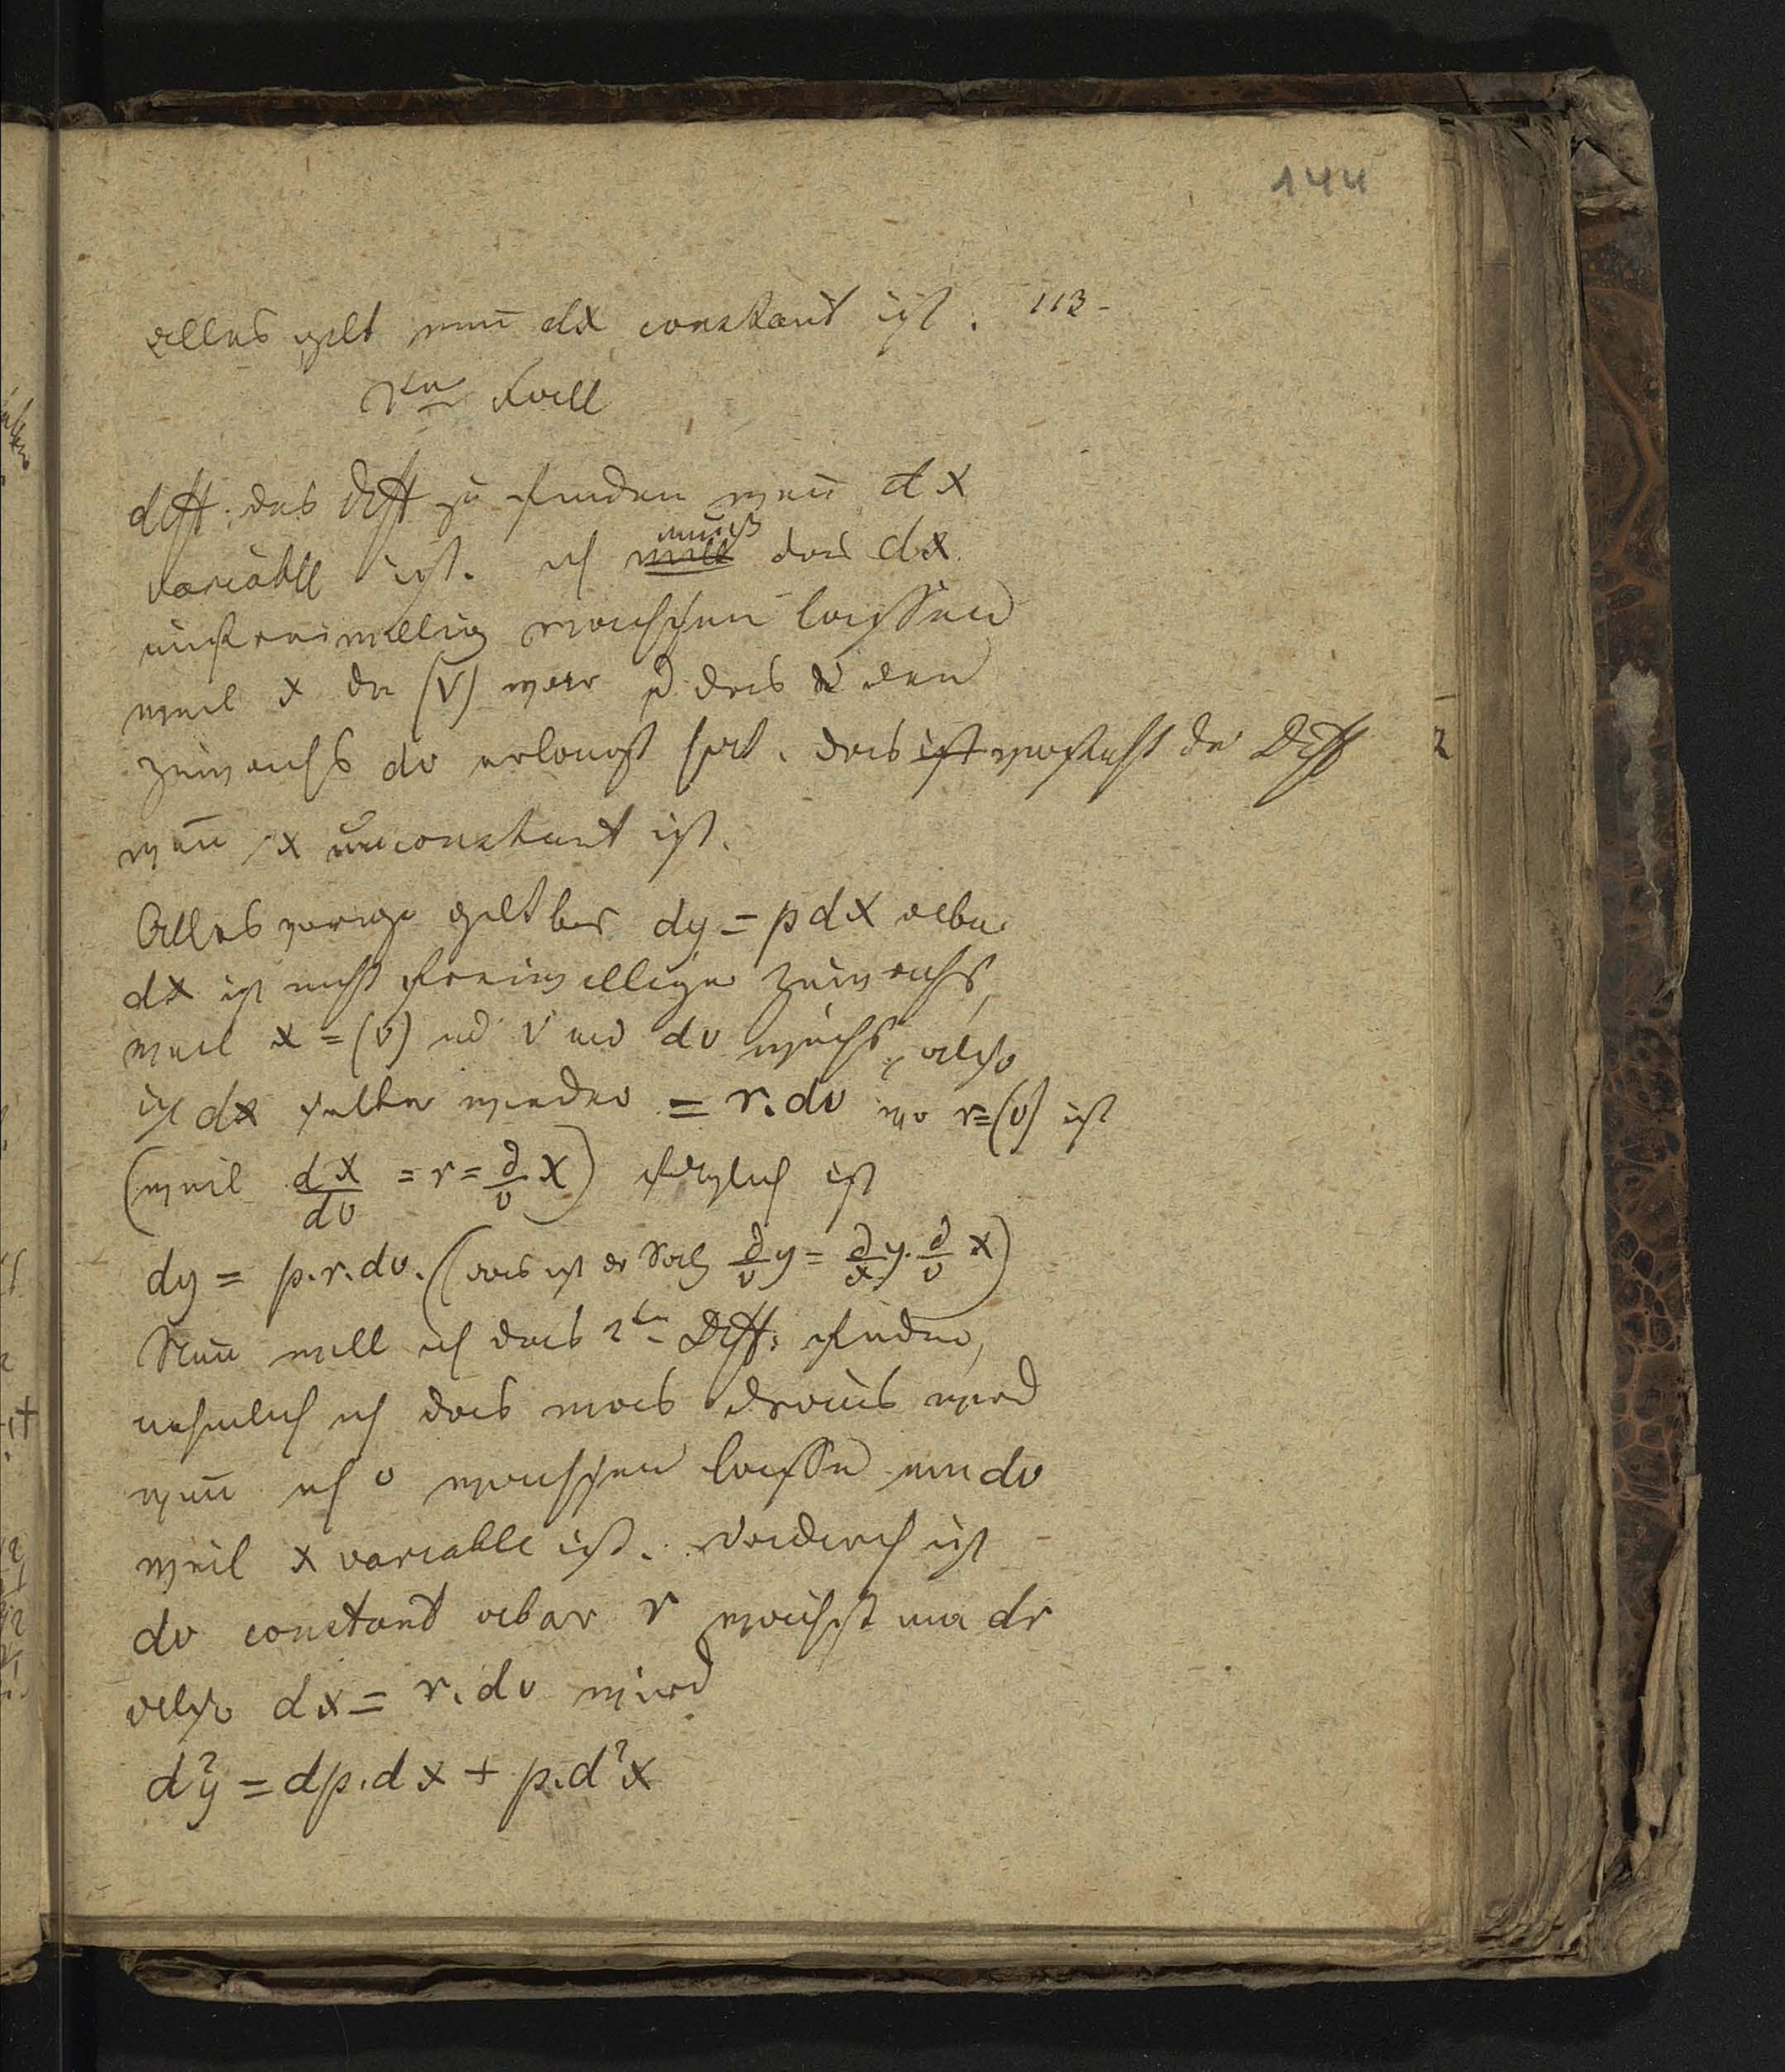 144
alles gilt wen̄ dx constant ist. 113-
2ter Fall
diff. das Diff zu finden wen̄ dx
variabll ist. ich will muß das dx
unfreiwillig wachsen lassen
weil x die (v) war das den
Zuwachs dv erlangt hat. das ist versteht der Diff
wen̄ x unconstant ist.
Alles vorige gilt bis dy = pdX aber
dx ist nicht freiwilliger Zuwachs,
weil x = (v) ud v um dv wächst, also
ist dx selber wieder = r.dv wo r=(v) ist
(weil dx/dv = r = ∂/v x) folglich ist
dy = p.r.dv. (das ist der Satz ∂/v y = ∂/x y. ∂/v x)
Nun will ich das 2te Diff: finden,
nehmlich ich das was draus wird
wen̄ ich v wachsen lasse um dv
weil x variable ist. Dadurch ist
dv constant aber r wächst um dr
also dx = r.dv wird
d²y = dp.dx + p.d²x